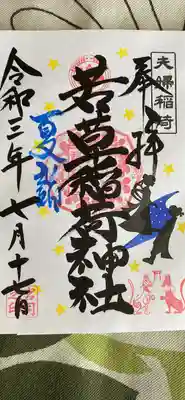 夫婦稲荷
奉拝
若草稲荷神社
夏詣
令和三年七月十七日